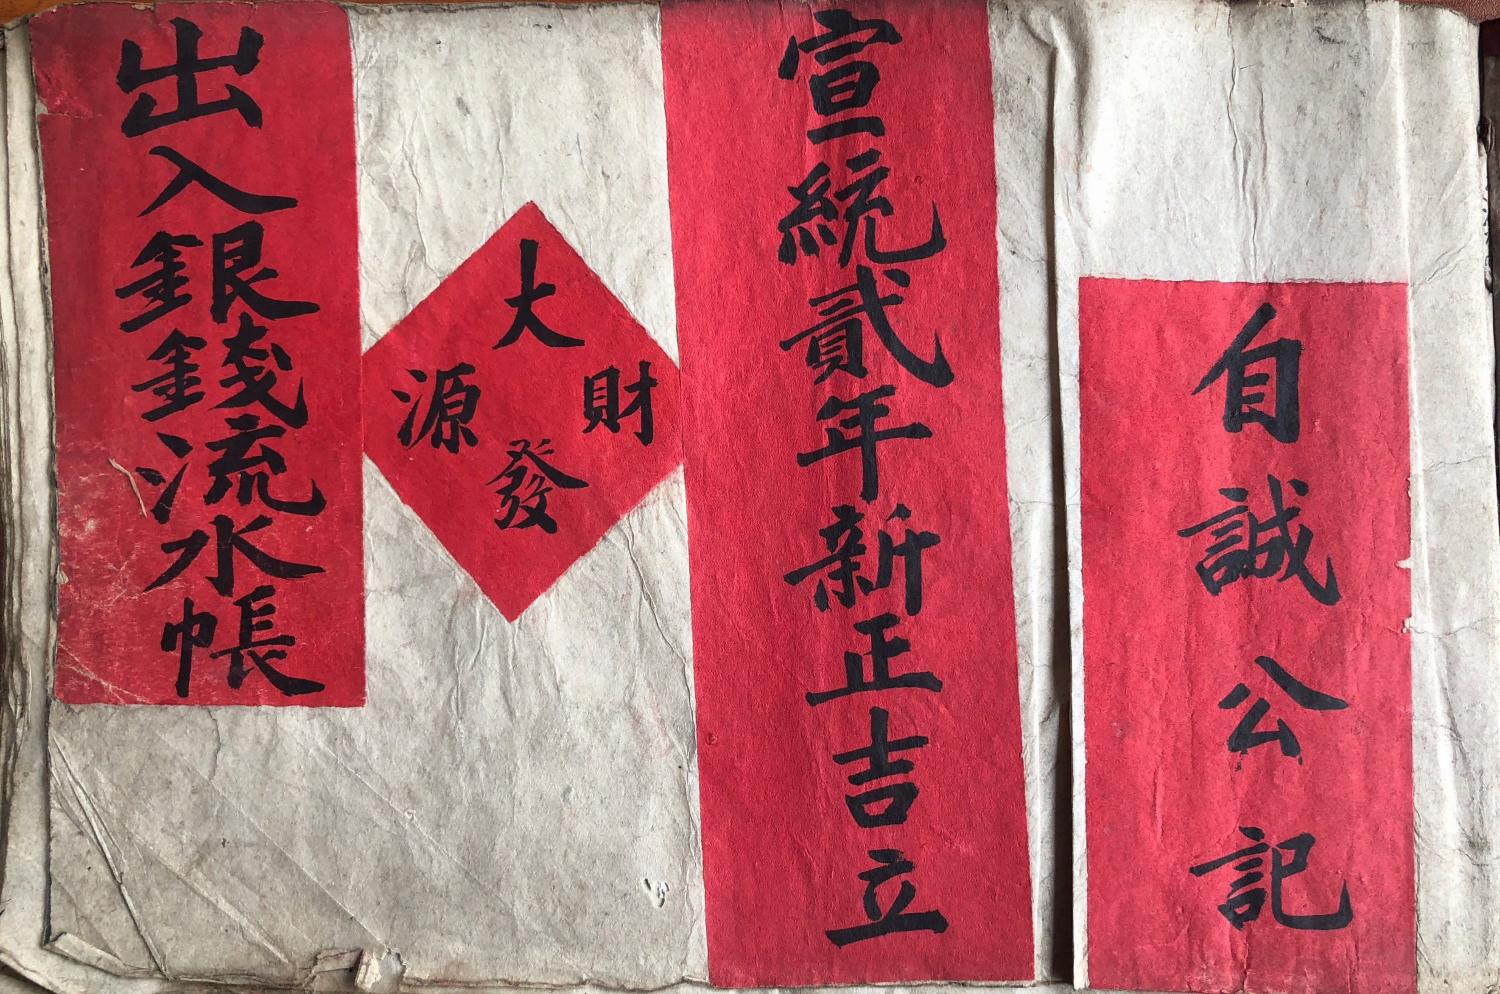 自誠公記
宣統貳年新正吉立
大
財
源
發
出入銀錢流水帳